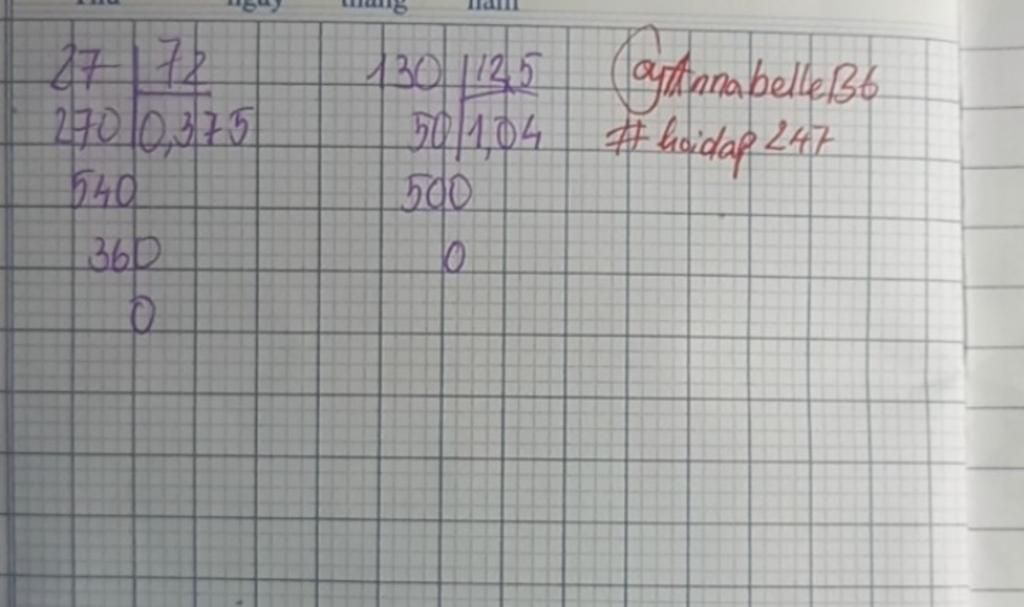 27 72
270 0,375
540
360
0
130 12,5
50 1,04
500
0
AnnabelleB6
#hoidap247
ngày tháng năm